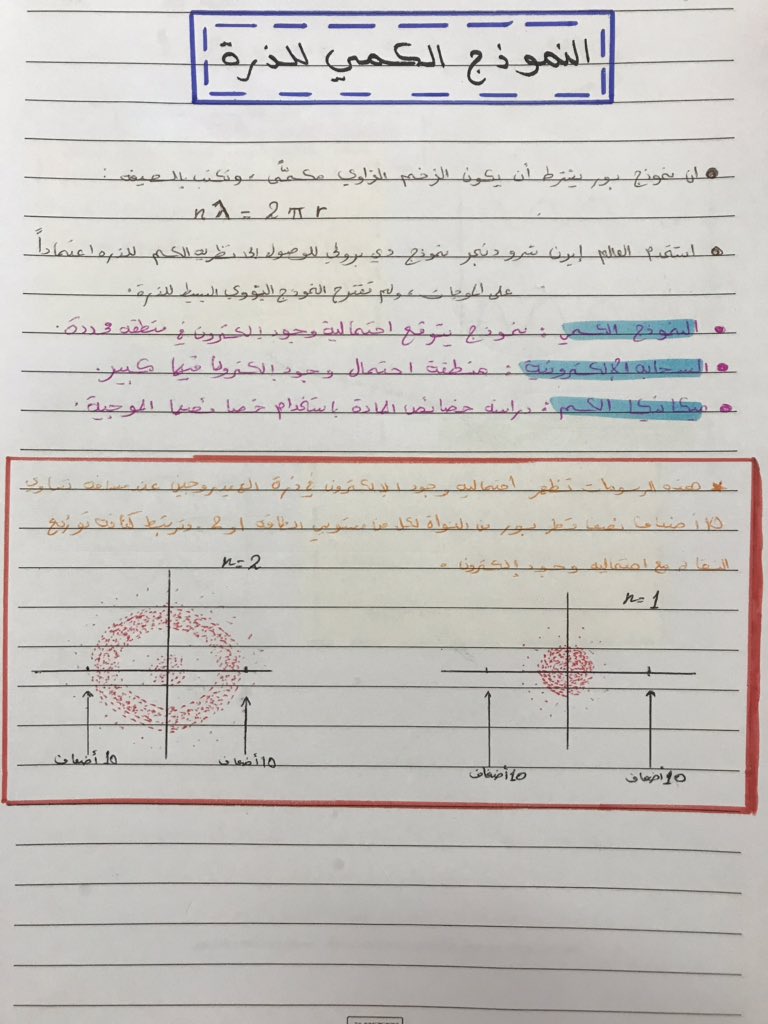 النموذج الكمي للذرة
• ان نموذج بور يشترط أن يكون الزخم الزاوي مكمَّى ، وتكتب بالصيغه :
nλ = 2πr
• استخدم العالم إيرن شرودنجر نموذج دي برولي للوصول الى نظريه الكم للذره اعتماداً
على الموجات ، ولم تقترح النموذج النووي البسيط للذرة .
• النموذج الكمي : نموذج يتوقع احتمالية وجود إلكترون في منطقه محددة .
• السحابه الإلكترونية : منطقة احتمال وجود إلكترون فيها كبير .
• ميكانيكا الكم : دراسه خصائص المادة باستخدام خصائصها الموجية .
* هذه الرسومات تظهر احتماليه وجود الإلكترون في ذرة الهيدروجين عن مسافه تساوي
10 أضعاف نصف قطر بور من النواة لكل من مستويي الطاقه 1 و 2 . وترتبط كثافه توزيع
النقاط مع احتماليه وجود إلكترون .
n=2
n=1
10 أضعاف
10 أضعاف
10 أضعاف
10 أضعاف